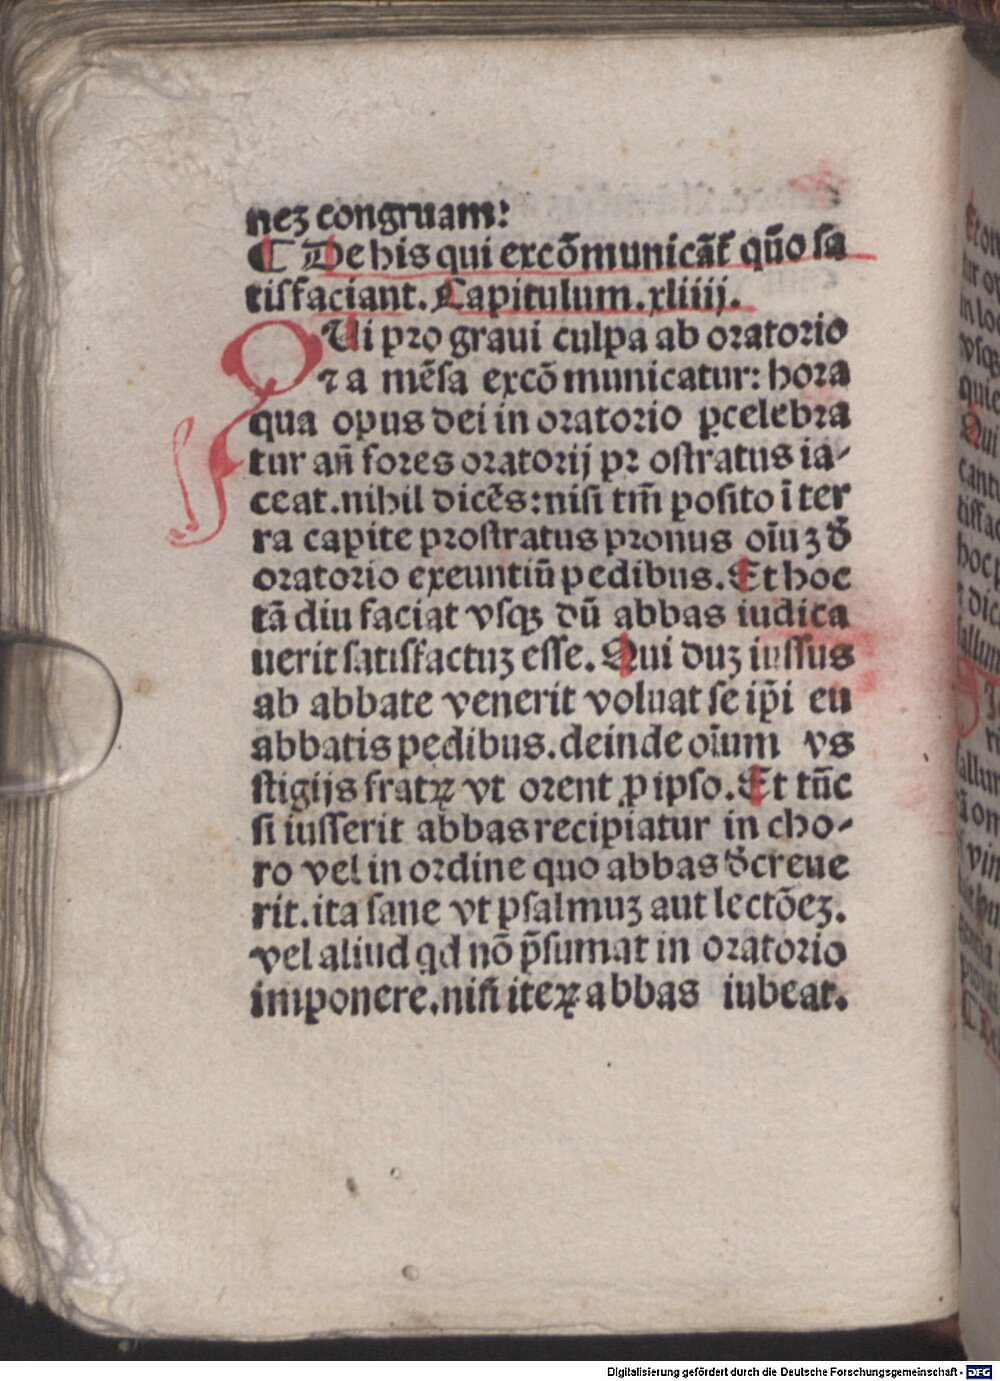 neʒ congruam:
¶ De his qui excōmunicāt̄ qūo sa
tisfaciant. Capitulum. xliiij.
QUi pro graui culpa ab oratorio
⁊ a mēsa excō municatur: hora
qua opus dei in oratorio ꝑcelebra
tur an̄ fores oratorij pr ostratus ia-
ceat. nihil dicēs: nisi tm̄ posito ī ter
ra capite prostratus pronus oīuʒ đ
oratorio exeuntiū pedibus. Et hoc
tā diu faciat vsqꝫ dū abbas iudica
uerit satisfactuʒ esse. Qui duʒ iussus
ab abbate venerit voluat se ip̄i eu
abbatis pedibus. deinde oīum vs
stigijs fratꝝ vt orent ꝓ ipso. Et tūc
si iusserit abbas recipiatur in cho-
ro vel in ordine quo abbas đcreue
rit. ita sane vt psalmuʒ aut lectōeʒ.
vel aliud qd nō p̄sumat in oratorio
imponere. nisi iteꝝ abbas iubeat.
Digitalisierung gefördert durch die Deutsche Forschungsgemeinschaft - DFG